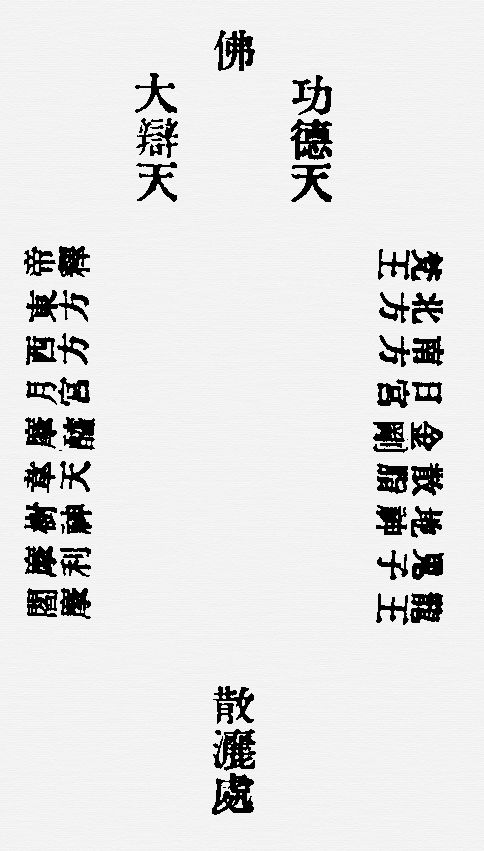 佛
功德天
大辯天
梵王
北方
南方
日宮
金剛
散脂
地神
鬼子
龍王
帝釋
東方
西方
月宮
摩醯
韋天
樹神
摩利
閻摩
散灑處